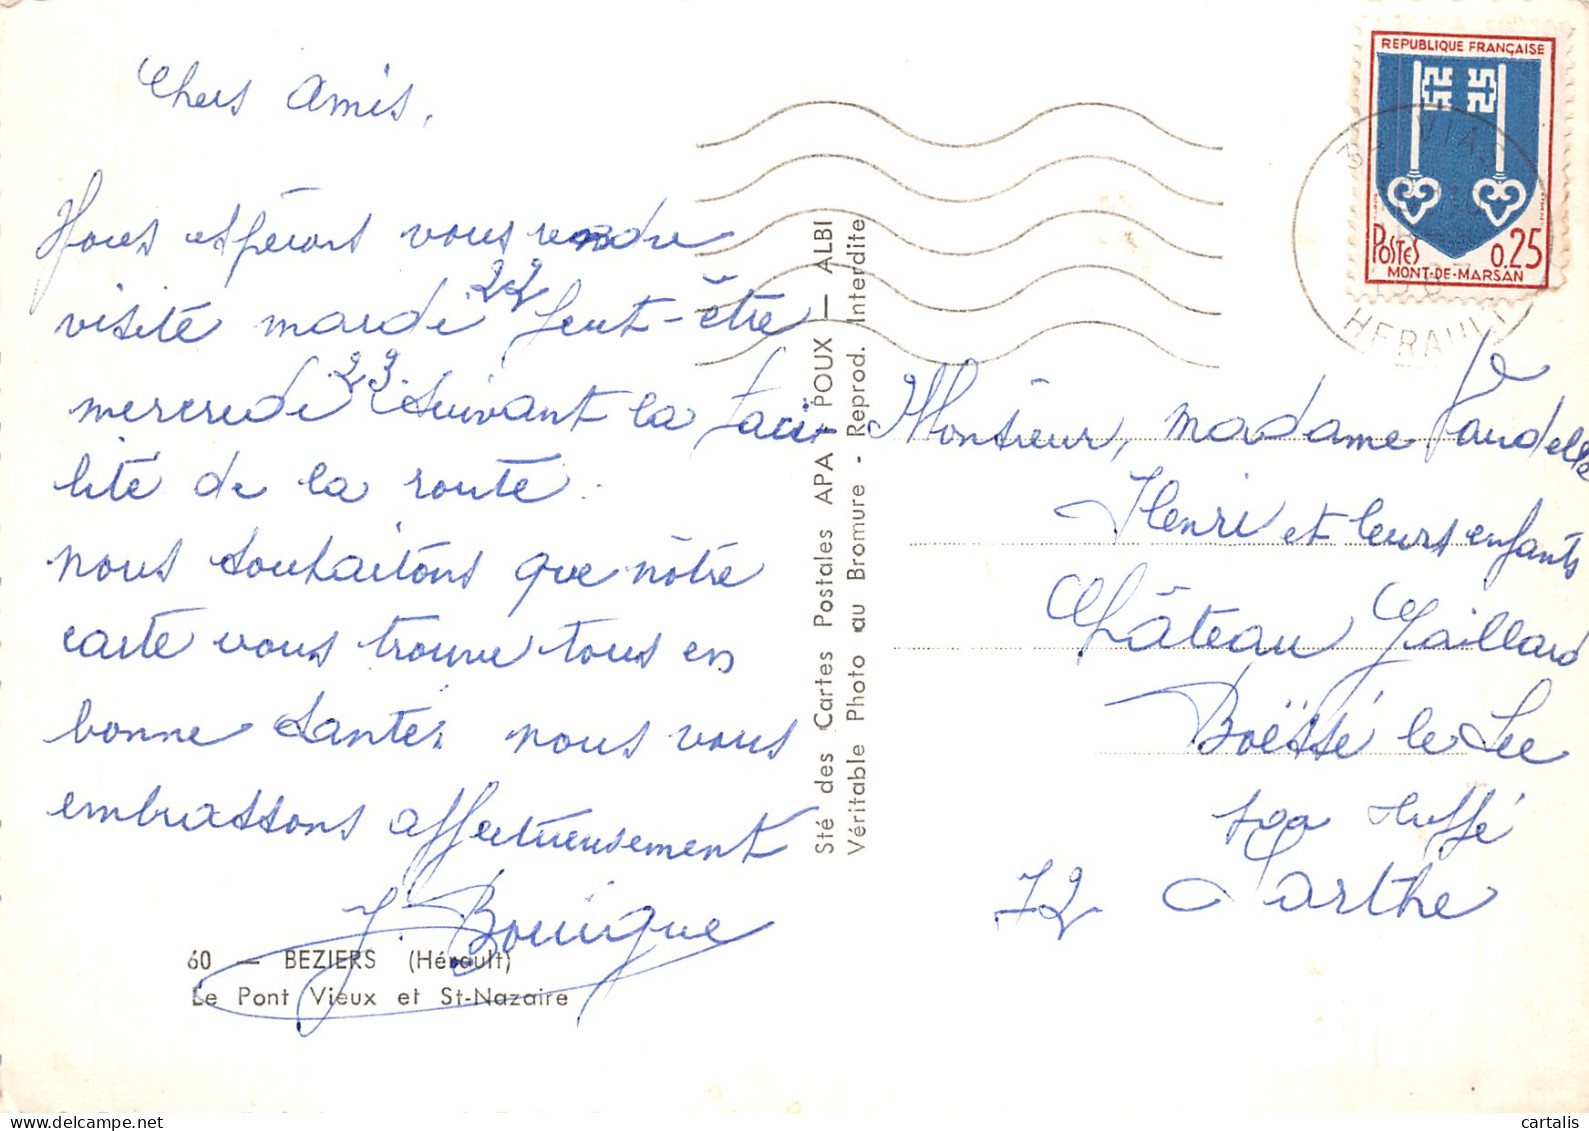 Chers amis,
Nous espérons vous rendre
visite mardi 22 peut-être
mercredi 23 suivant la faci-
lité de la route.
nous souhaitons que nôtre
carte vous trouve tous en
bonne santé. nous vous
embrassons affectueusement
J. Bouïgue
60 — BEZIERS (Hérault)
Le Pont Vieux et St-Nazaire
Sté des Cartes Postales APA - POUX — ALBI
Véritable Photo au Bromure - Reprod. Interdite
REPUBLIQUE FRANÇAISE
POSTES 0.25
MONT-DE-MARSAN
34 VIAS
HERAULT
Monsieur, madame Vaudelle
Henri et leurs enfants
Château Gaillard
Boëssé le Sec
par Tuffé
72 Sarthe
cartalis